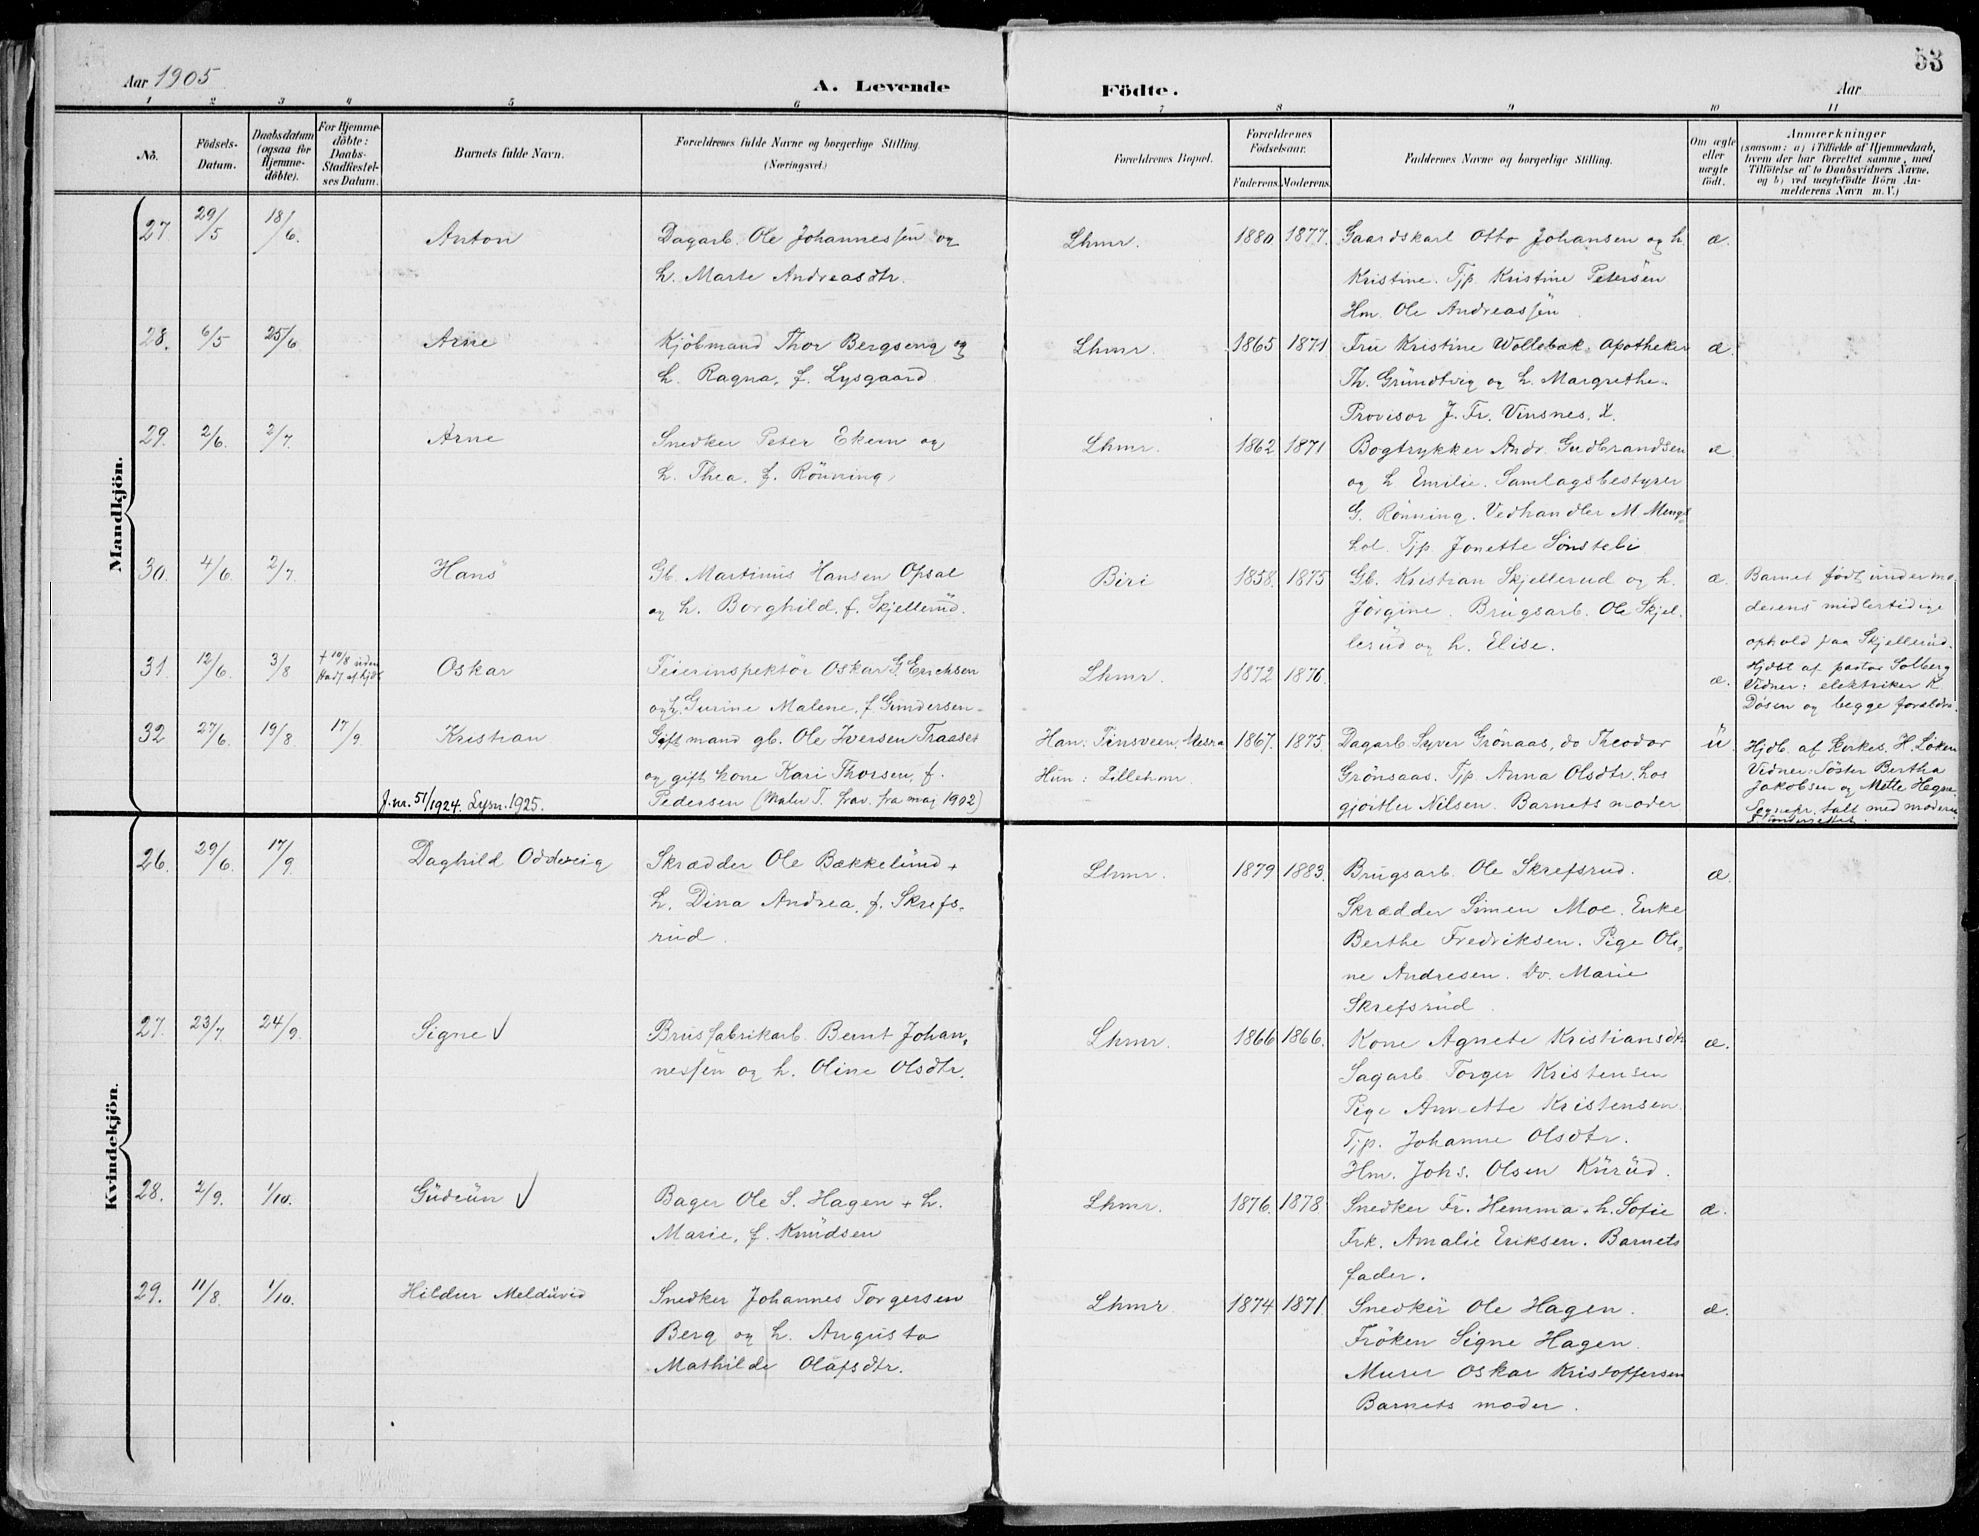 53
Aar 1905
A. Levende
Födte.
Aar
1 2 3 4 5 6 7 8 9 10 11
No.
Födsels-
Datum.
Daabsdatum
(ogsaa for
Hjemme-
döbte).
For Hjemme-
döbte:
Daabs-
Stadfæstel-
ses Datum.
Barnets fulde Navn.
Forældrenes fulde Navne og borgerlige Stilling.
(Næringsvei.)
Forældrenes Bopæl.
Forældrenes
Födselsaar.
Faderens. Moderens.
Faddernes Navne og borgerlige Stilling.
Om ægte
eller
uægte
födt.
Anmærkninger
(saasom: a) i Tilfælde af Hjemmedaab,
hvem der har forrettet samme, med
Tilföielse af to Daabsvidners Navne,
og b) ved uægtefödte Börn An-
melderens Navn m. V.)
Mandkjön.
27. 29/5 18/6. Anton
Dagarb. Ole Johannessen og
h. Marte Andreasdtr.
Lhmr. 1880. 1877.
Gaardskarl Otto Johansen og h.
Kristine. Tjp Kristine Petersen
Hm. Ole Andreassen
æ.
28. 6/5 25/6 Arne
Kjöbmand Thor Bergseng og
h. Ragna, f. Lysgaard
Lhmr. 1865 1871
Fru Kristine Wollebæk. Apotheker
Th. Gründtvig og h. Margrethe.
Provisor J. Fr. Vinsnes. X.
æ.
29. 2/6. 2/7. Arne
Snedker Peter Ekern og
h. Thea, f. Rönning,
Lhmr. 1862 1871
Bogtrykker Andr. Gudbrandsen
og h Emilie. Samlagsbestyrer
G. Rönning. Vedhandler M Mengs
hol. Tjp Jonette Sönstebi
æ.
30. 4/6. 2/7. Hans
Gb. Martinus Hansen Opsal
og h. Borghild, f. Skjellerud.
Biri 1858. 1875
Gb. Kristian Skjellerud og h.
Jörgine. Brugsarb. Ole Skjel-
lerud og h. Elise.
æ.
Barnet födt under mo-
derens midlertidige
ophold paa Skjellerud.
31. 12/6. 3/8 † 10/8 uden
stadf. af hjdb
Oskar
Feierinspektör Oskar G. Erichsen
og h. Gurine Malene, f. Gundersen.
Lhmr. 1872 1876.
æ.
Hjdbt af pastor Solberg
Vidner: elektriker K.
Dösen og begge forældre.
32 27/6. 19/8. 17/9. Kristian
Gift mand gb. Ole Iversen Traaset
og gift kone Kari Thorsen, f.
Pedersen (Maler T. frav. fra maj 1902)
J.nr. 51/1924. Lysn. 1925.
Han: Tinsveen, Mesna
Hun: Lillehmr
1867. 1875.
Dagarb Syver Grönaas, do Theodor
Grönsaas. Tjp Anna Olsdtr. hos
gjörtler Nilsen. Barnets moder
ü
Hjdb. af kirkes. H. Löken
Vidner: Söster Bertha
Jakobsen og Mette Hagne.
Sognepr. talt med moderen
Kvindekjön.
26. 29/6. 17/9. Daghild Oddveig
Skrædder Ole Bækkelund +
h. Dina Andrea, f. Skrefs-
rud.
Lhmr. 1879 1883.
Brugsarb. Ole Skrefsrud.
Skrædder Simen Moe. Enke
Berthe Fredriksen. Pige Oli-
ne Andresen. Do. Marie
Skrefsrud.
æ.
27. 23/7. 24/9. Signe √
Brusfabrikarb. Bernt Johan-
nessen og h. Oline Olsdtr.
Lhmr. 1866 1866.
Kone Agnete Kristiansdtr
Sagarb. Torger Kristensen
Pige Annette Kristensen.
Tjp. Johanne Olsdtr.
Hm. Johs. Olsen Kürüd.
æ.
28. 2/9. 1/10. Güdrün √
Bager Ole S. Hagen + h.
Marie, f. Knüdsen
Lhmr. 1876. 1878
Snedker Fr. Hemma + h. Sofie
Frk. Amalie Eriksen. Barnets
fader.
æ.
29. 11/8. 1/10. Hildur Meldüvid
Snedker Johannes Torgersen
Berg og h. Augusta
Mathilde Olafsdtr.
Lhmr. 1874 1871
Snedker Ole Hagen.
Fröken Signe Hagen.
Murer Oskar Kristoffersen
Barnets moder.
æ.